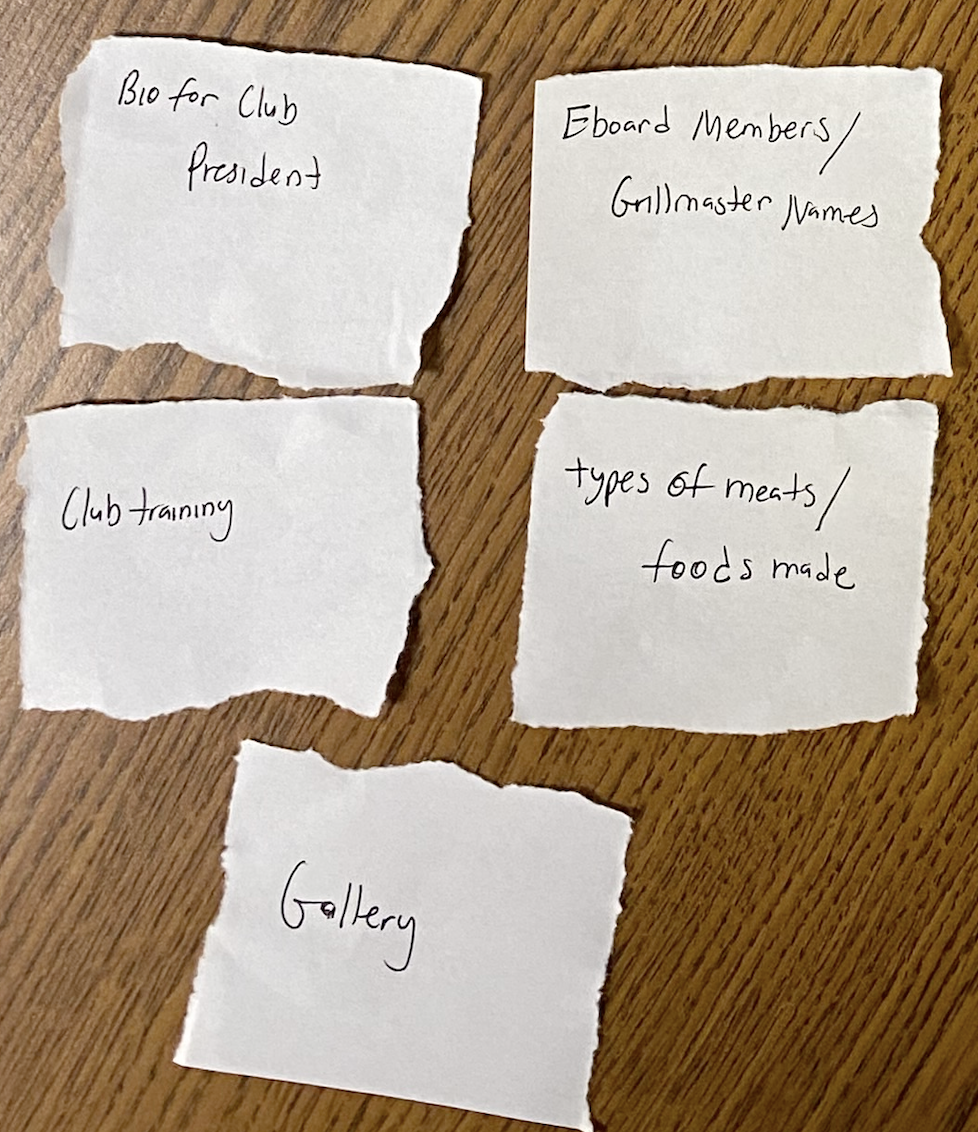 Bio for Club
President
Eboard Members/
Grillmaster Names
Club training
types of meats/
foods made
Gallery